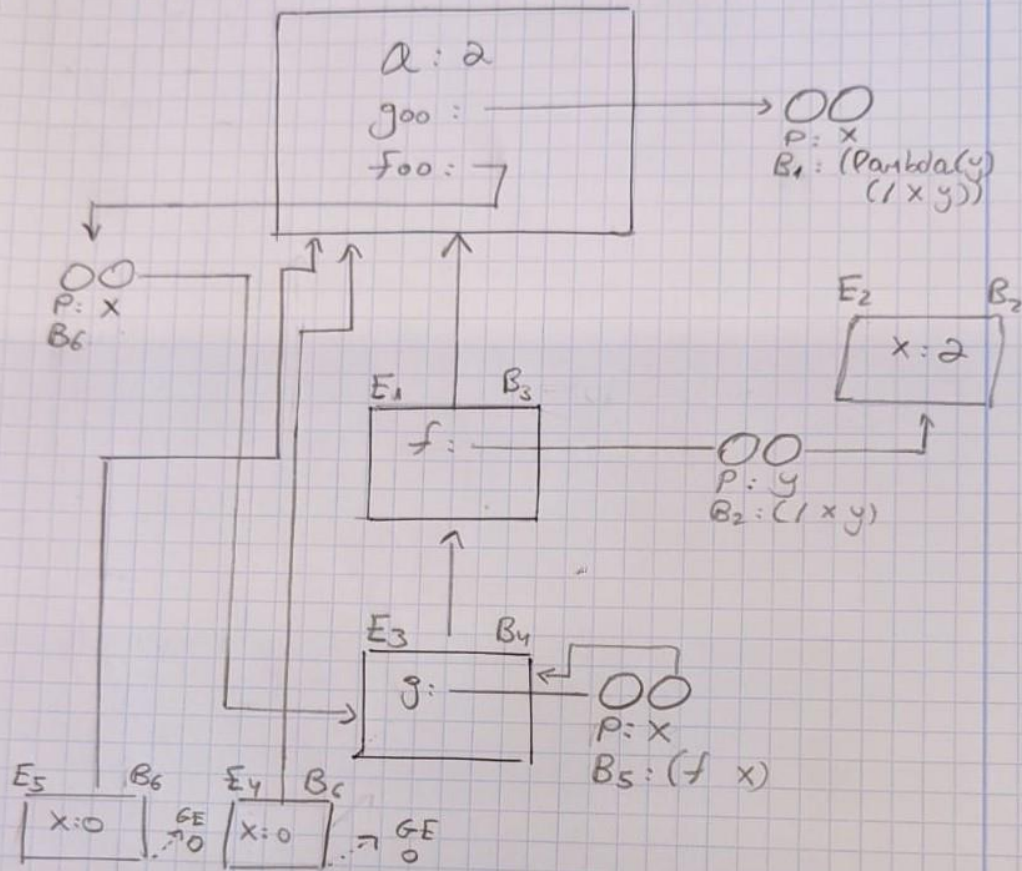 a : 2
goo :
foo :
P: x
B1 : (lambda(y)
(/ x y))
P: x
B6
E2 B2
x : 2
E1 B3
f :
P: y
B2 : (/ x y)
E3 B4
g:
P: x
B5 : (f x)
E5 B6
x:0
GE
0
E4 B6
x:0
GE
0